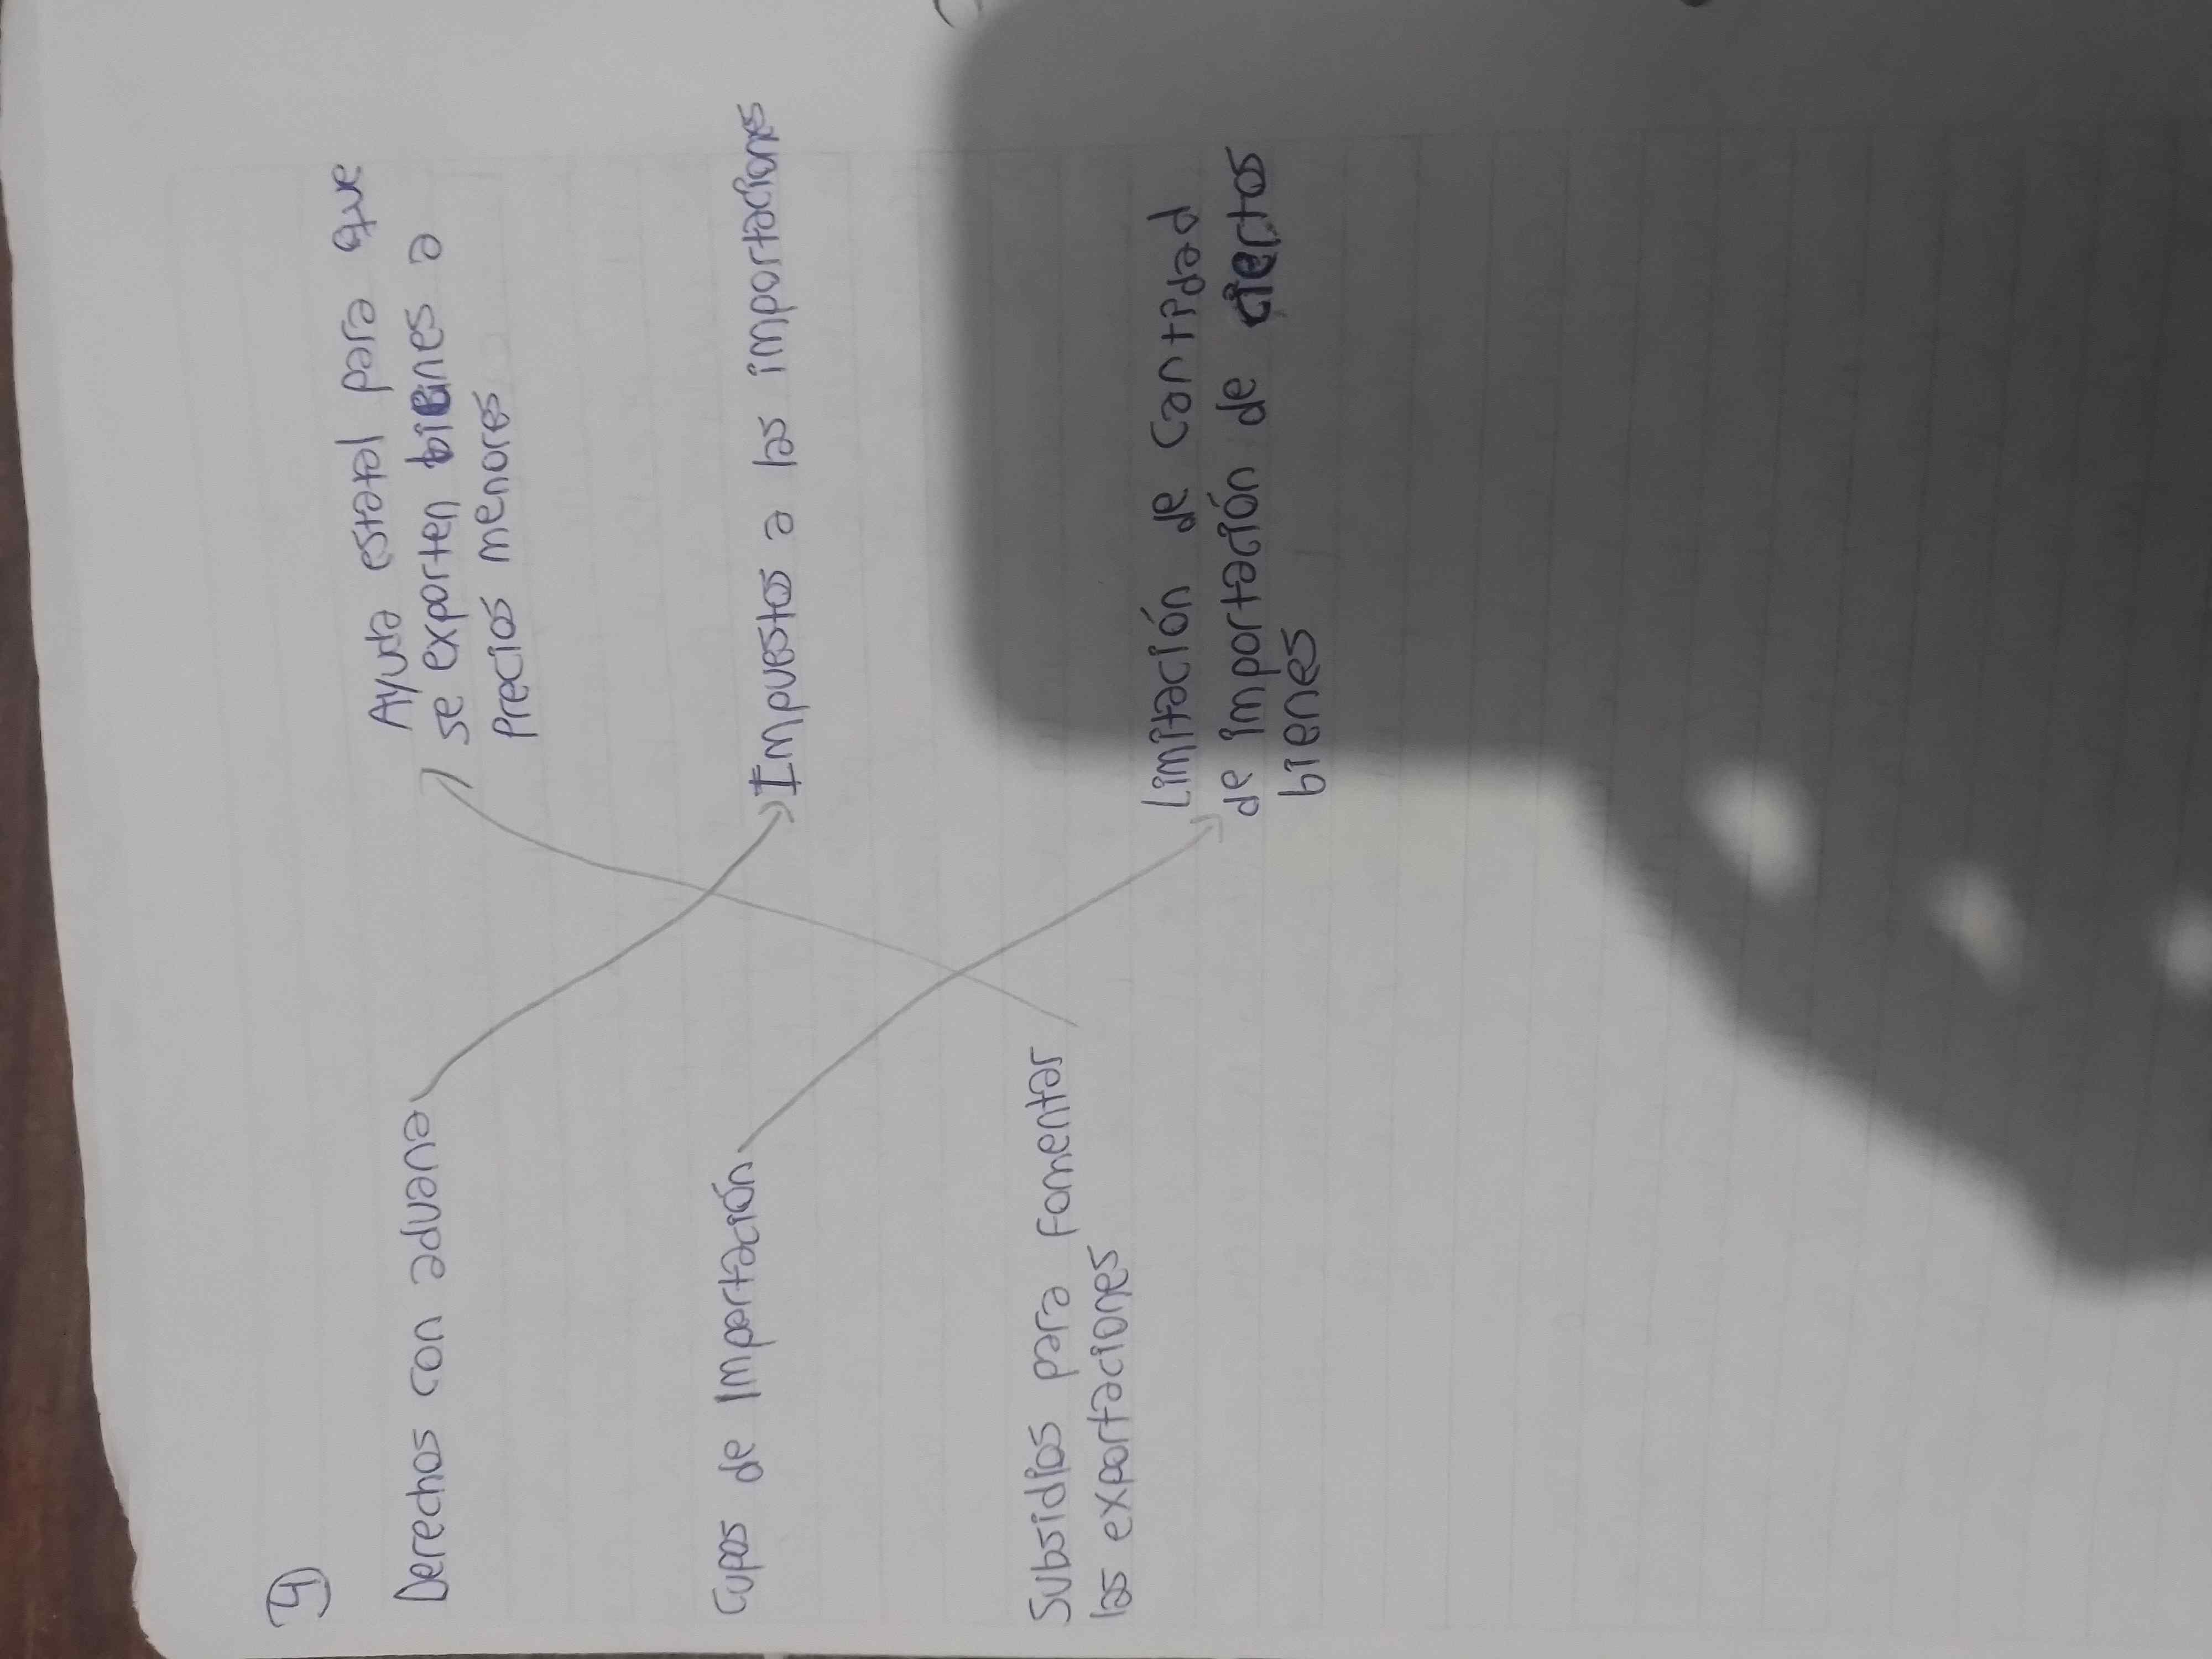 4)
Derechos con aduana
Ayuda estatal para que
se exporten bienes a
precios menores
Cupos de Importación
Impuestos a las importaciones
Subsidios para fomentar
las exportaciones
Limitación de cantidad
de importación de ciertos
bienes